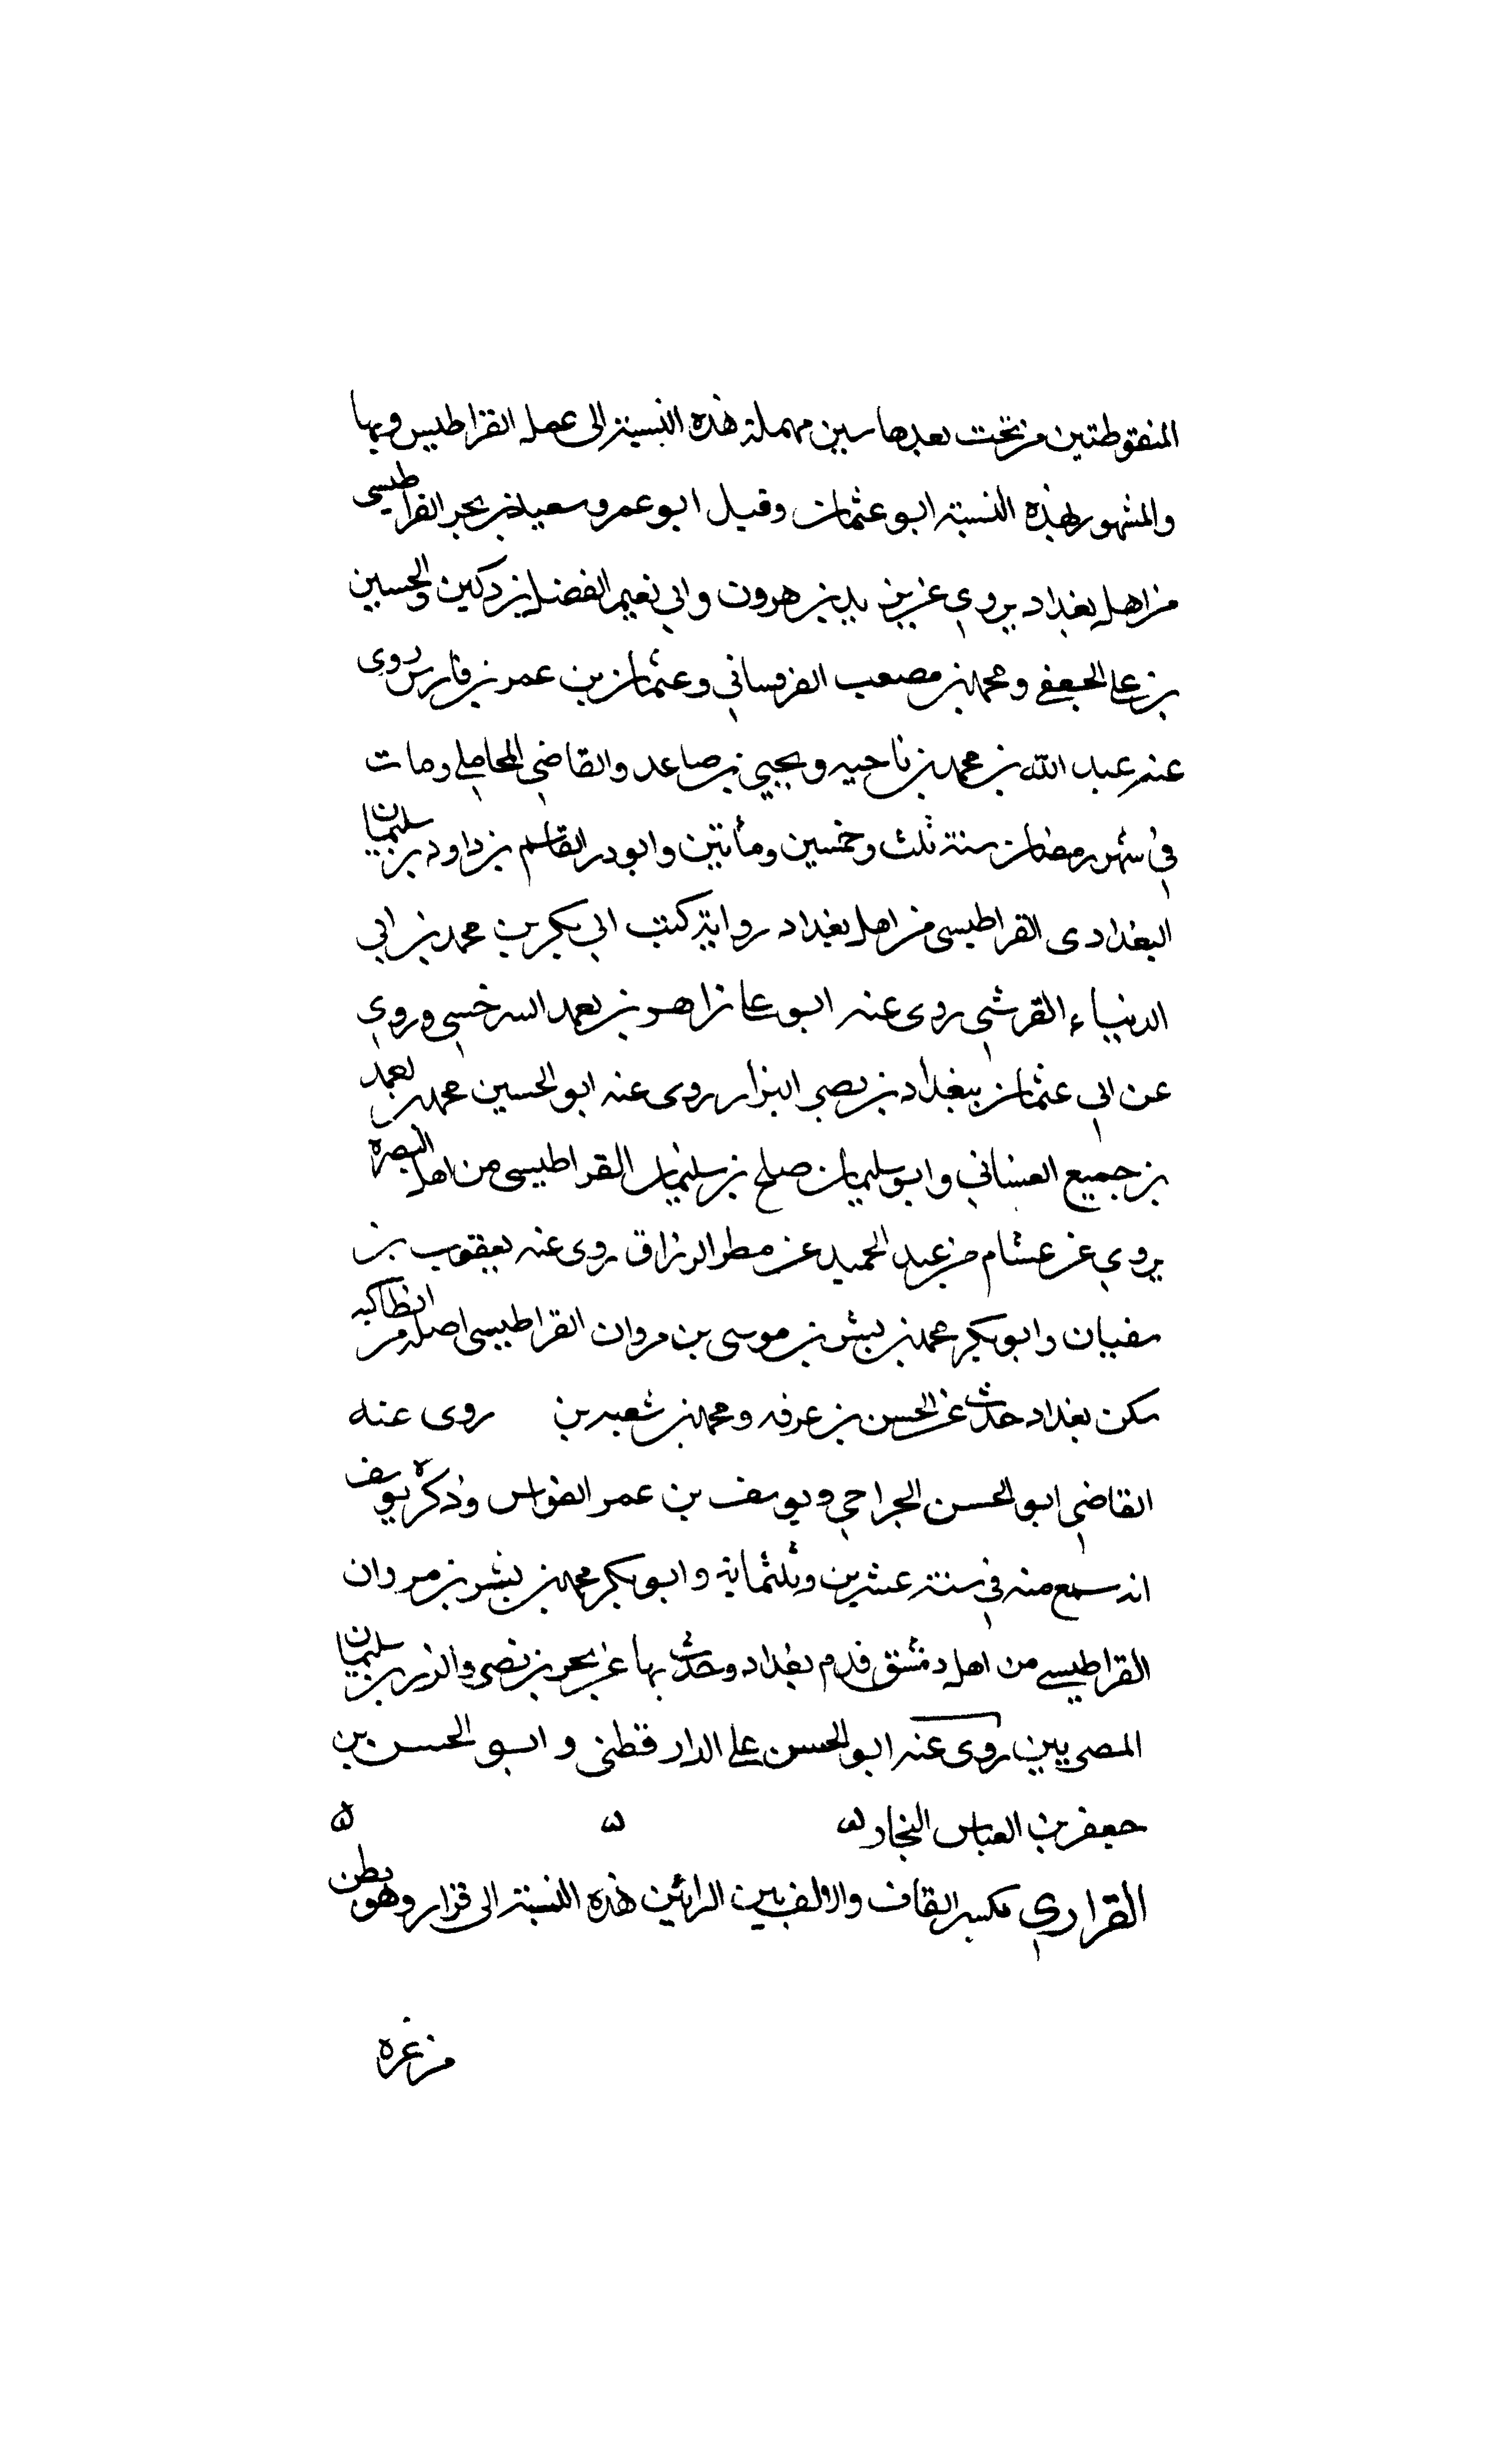 المنقوطتين من تحت بعدها سين مهملة هذه النسبة الى عمل القراطيس وبها
والمشهور بهذه النسبة ابو عثمان وقيل ابو عمرو سعيد بن بحر القراطيسى
من اهل بغداد يروي عن يزيد بن هرون وابي نعيم الفضل بن دكين والحسين
بن علي الجعفي ومحمد بن مصعب القرقساني وعثمان بن عمر بن فارس روى
عنه عبد الله بن محمد بن ناجيه ويحيى بن صاعد والقاضي المحاملي ومات
في شهر رمضان سنة ثلث وخمسين ومأتين وابو ذر القاسم بن داود بن سليمان
البغدادى القراطيسى من اهل بغداد رواية كتب ابي بكر بن محمد بن ابي
الدنياء القرشي روى عنه ابو علي زاهر بن احمد السرخسي وروي
عن ابي عثمان ببغداد بن نصر البزار روى عنه ابو الحسين محمد بن احمد
بن جميع الغساني وابو سليمان صلح بن سليمان القراطيسى من اهل البصرة
يروي عن عثام بن عبد الحميد عن مطر الوراق روى عنه يعقوب بن
سفيان وابو بكر محمد بن بشر بن موسى بن مروان القراطيسى اصله من انطاكيه
سكن بغداد حدث عن الحسن بن عرفه ومحمد بن شعبه بن روى عنه
القاضي ابو الحسن الجراحي ويوسف بن عمر القواس وذكره يوسف
انه سمع منه في سنة عشرين وثلثماية وابو بكر محمد بن بشر بن مروان
القراطيسي من اهل دمشق قدم بغداد وحدث بها عن بحر بن نصر والربيع بن سليمان
المصريين روى عنه ابو الحسن علي الدارقطنى وابو الحسن بن
جعفر بن العباس النجار ه ه ه
القراري مكسر القاف والالف بين الرائين هذه النسبة الى قرار وهو بطن
من عنزه